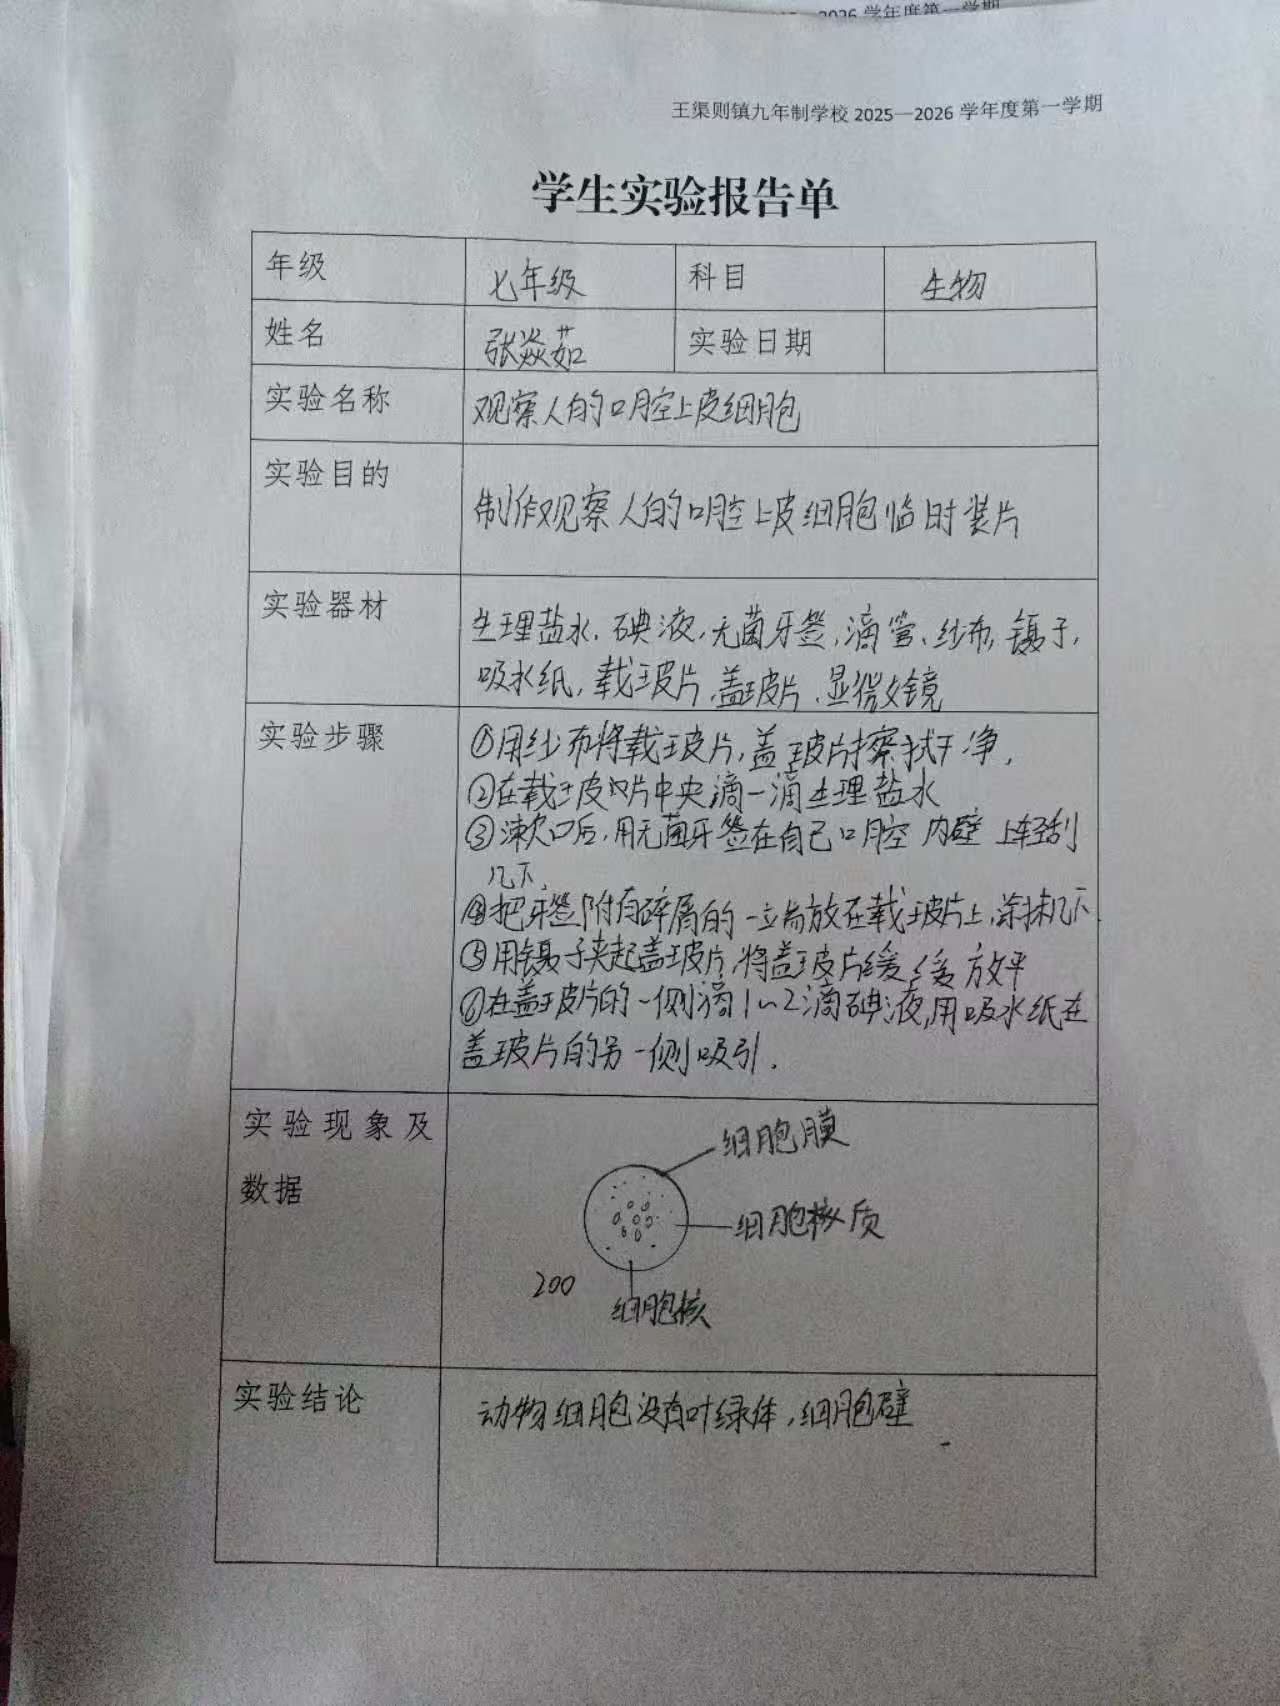 2026 学年度第一学期
王渠则镇九年制学校 2025—2026 学年度第一学期
学生实验报告单
年级 七年级 科目 生物
姓名 张焱茹 实验日期
实验名称 观察人的口腔上皮细胞
实验目的 制作观察人的口腔上皮细胞临时装片
实验器材 生理盐水、碘液、无菌牙签、滴管、纱布、镊子、
吸水纸、载玻片、盖玻片、显微镜
实验步骤 ①用纱布将载玻片,盖玻片擦拭干净,
②在载玻片中央滴一滴生理盐水
③漱口后,用无菌牙签在自己口腔内壁上轻刮
几下,
④把牙签附有碎屑的一端放在载玻片上,涂抹几下
⑤用镊子夹起盖玻片,将盖玻片缓缓放平
⑥在盖玻片的一侧滴1~2滴碘液,用吸水纸在
盖玻片的另一侧吸引.
实验现象及
数据
细胞膜
细胞质
200
细胞核
实验结论 动物细胞没有叶绿体,细胞壁